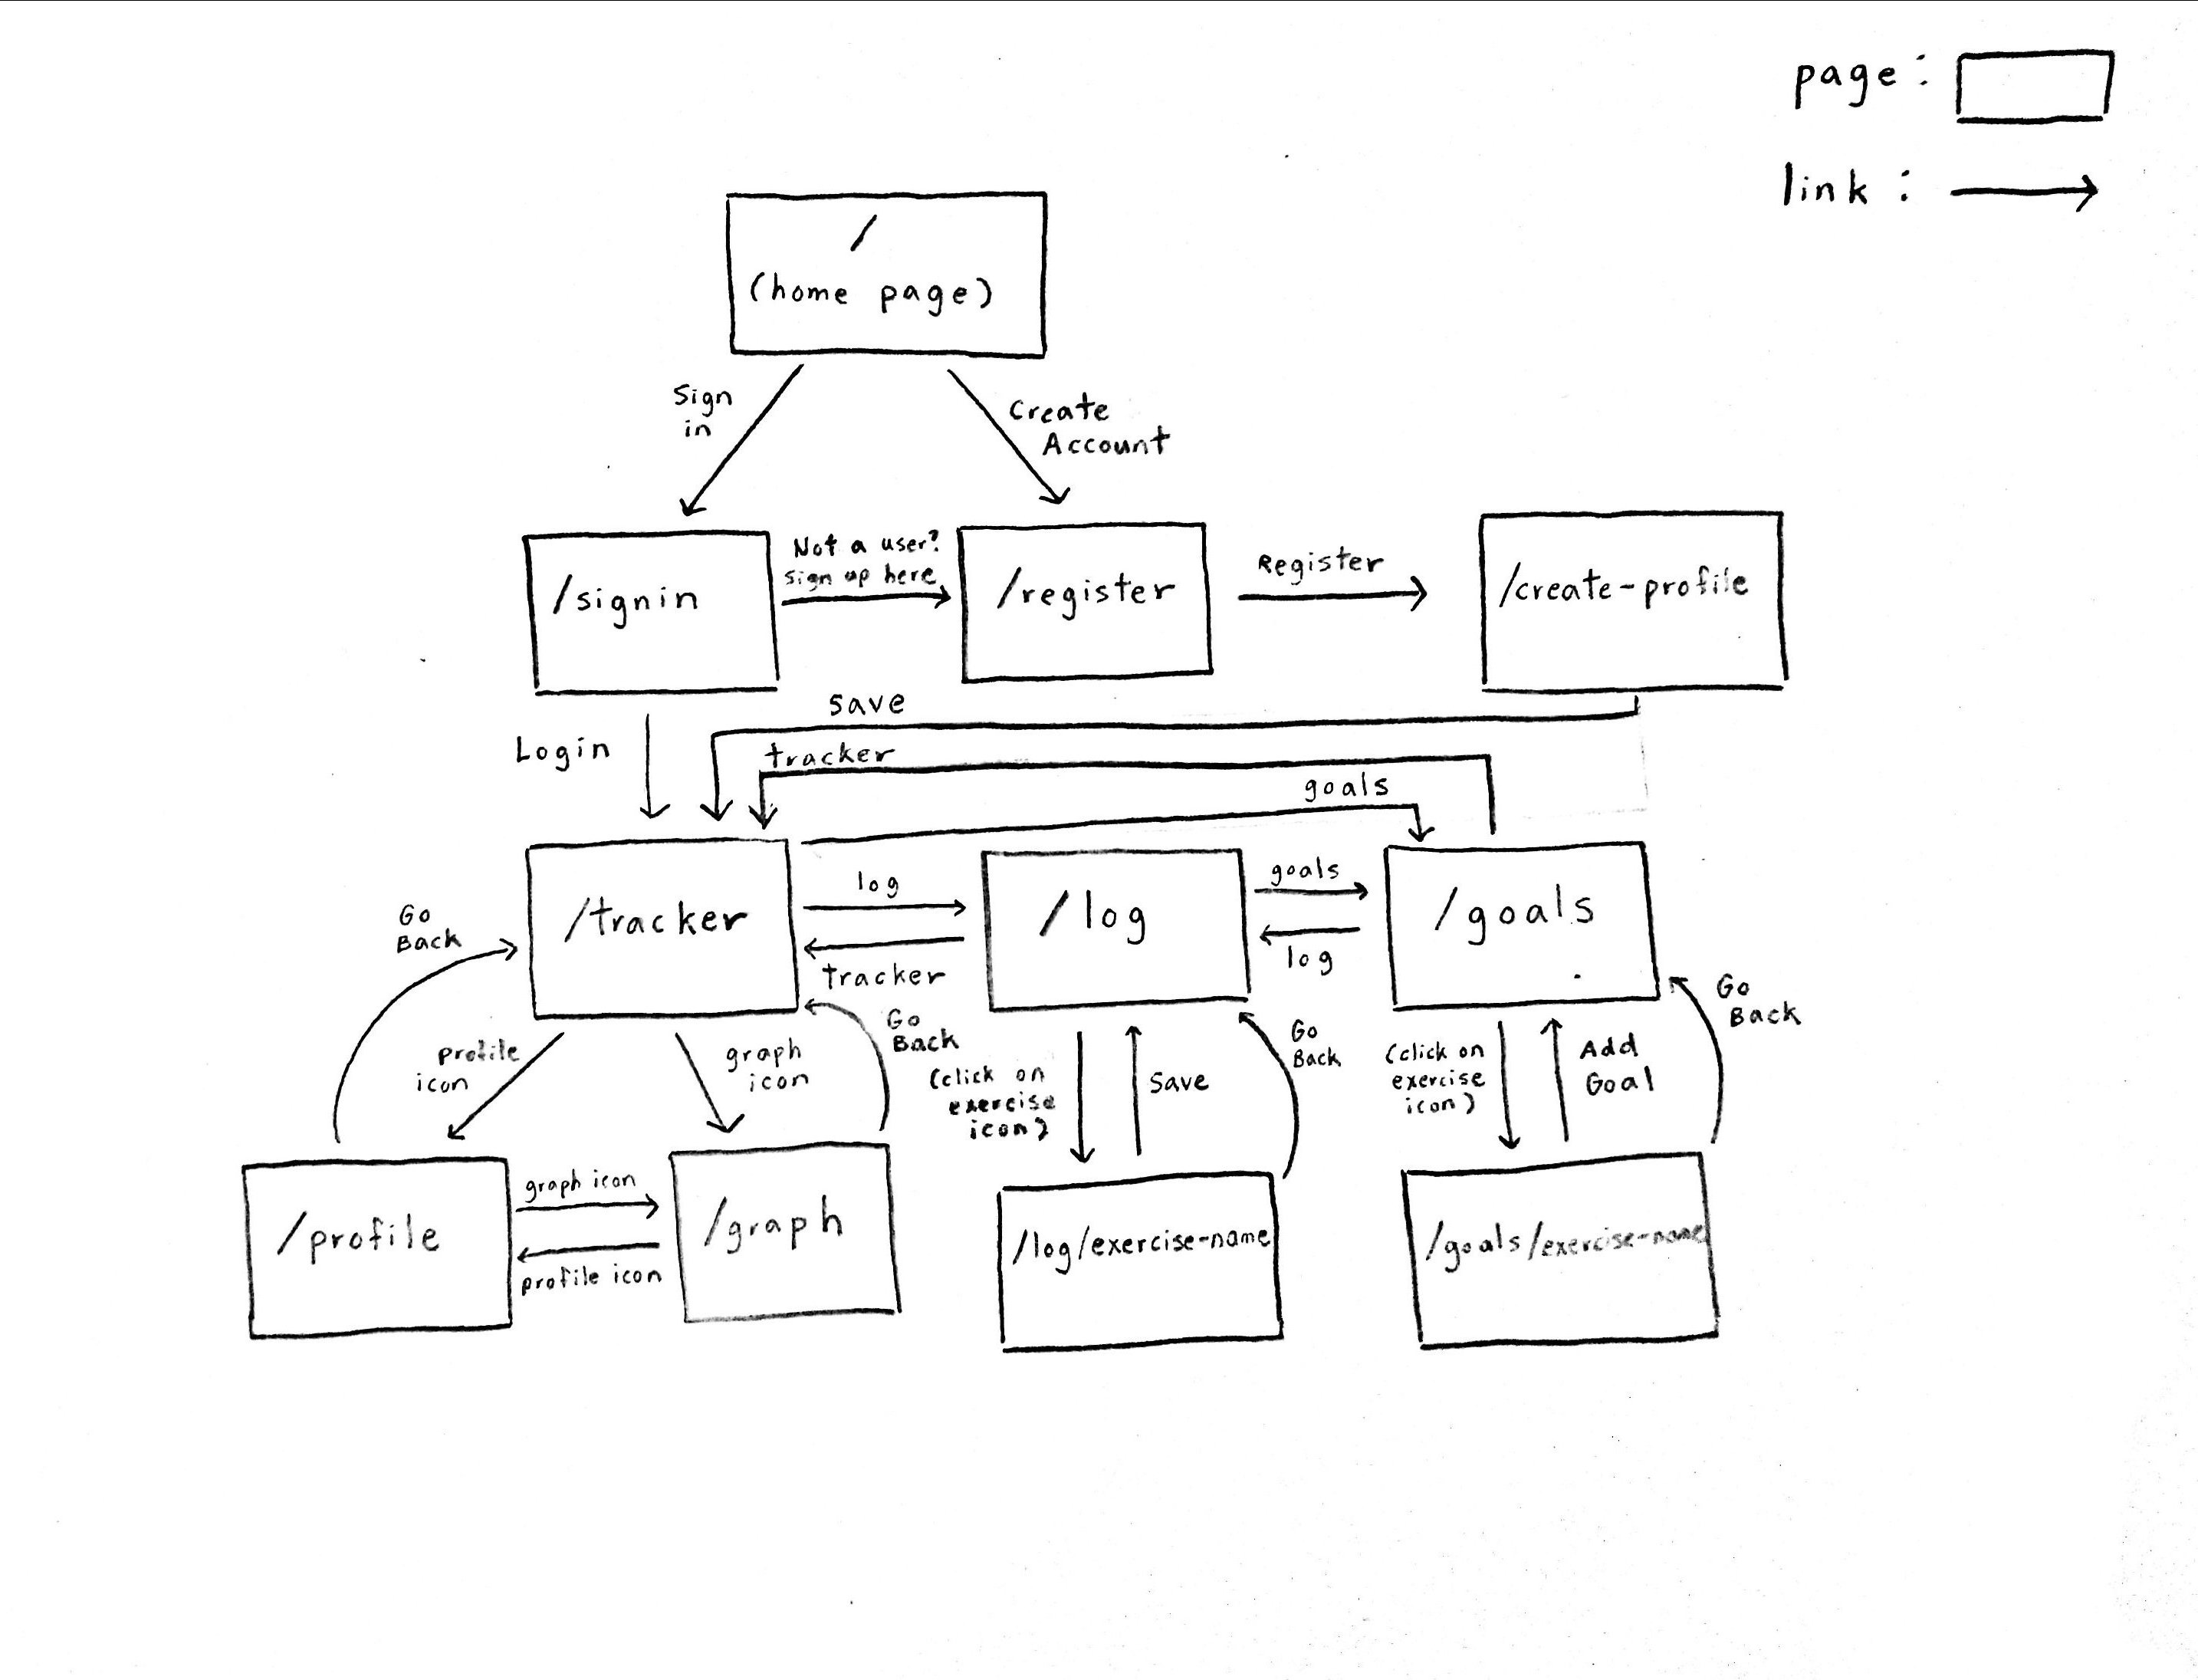 page:
link:
/
(home page)
Sign
in
Create
Account
/signin
Not a user?
sign up here
/register
Register
/create-profile
save
Login
tracker
goals
/tracker
log
tracker
/log
goals
log
/goals
Go
Back
profile
icon
graph
icon
Go
Back
(click on
exercise
icon)
Save
Go
Back
(click on
exercise
icon)
Add
Goal
Go
Back
/profile
graph icon
profile icon
/graph
/log/exercise-name
/goals/exercise-name